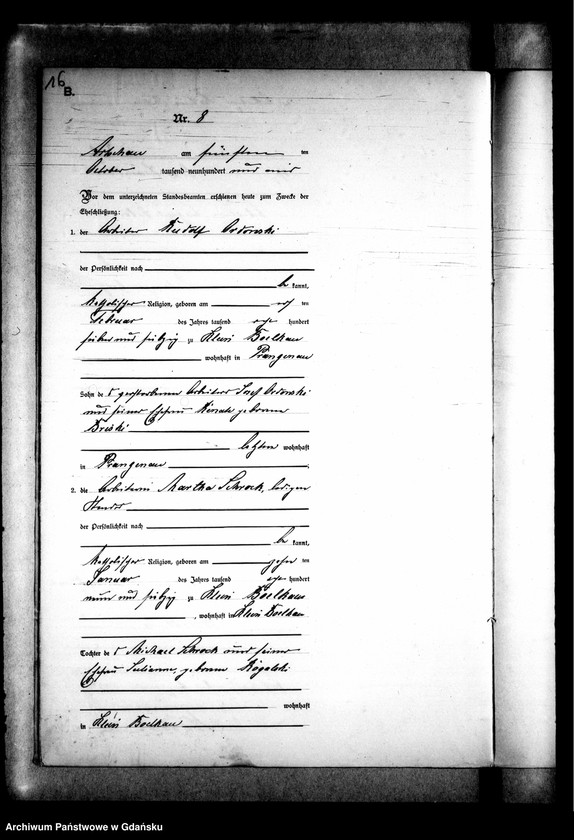 16
B.
Nr. 8
am fünften ten
October tausend neunhundert und
Vor dem unterzeichneten Standesbeamten erschienen heute zum Zwecke der
Eheschließung:
1. der Arbeiter Rudolf Ordowski
der Persönlichkeit nach
be kannt,
katholischer Religion, geboren am ten
Februar des Jahres tausend acht hundert
sieben und siebzig zu Klein Boelkau
wohnhaft in Prangenau
Sohn des verstorbenen Arbeiters Josef Ordowski
und seiner Ehefrau Renate geborene
letzten wohnhaft
in Prangenau
2. die Arbeiterin Martha Schrock, ledigen
Standes
der Persönlichkeit nach
be kannt,
katholischer Religion, geboren am zehn ten
Januar des Jahres tausend acht hundert
neun und siebzig zu Klein Boelkau
, wohnhaft in Klein Boelkau
Tochter des Michael Schrock und seiner
Ehefrau Julianne, geborene Rogalski
wohnhaft
in Klein Boelkau
Archiwum Państwowe w Gdańsku